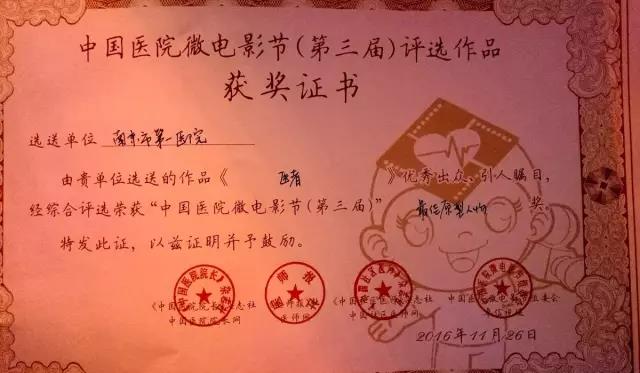 中国医院微电影节(第三届)评选作品
获奖证书
选送单位 南京市第一医院
由贵单位选送的作品《 医者 》优秀出众、引人瞩目,
经综合评选荣获“中国医院微电影节(第三届)” 最佳原型人物 奖。
特发此证,以兹证明并予鼓励。
医师报
《中国医院院长》杂志社
中国医院院长网 医师网
2016年11月26日